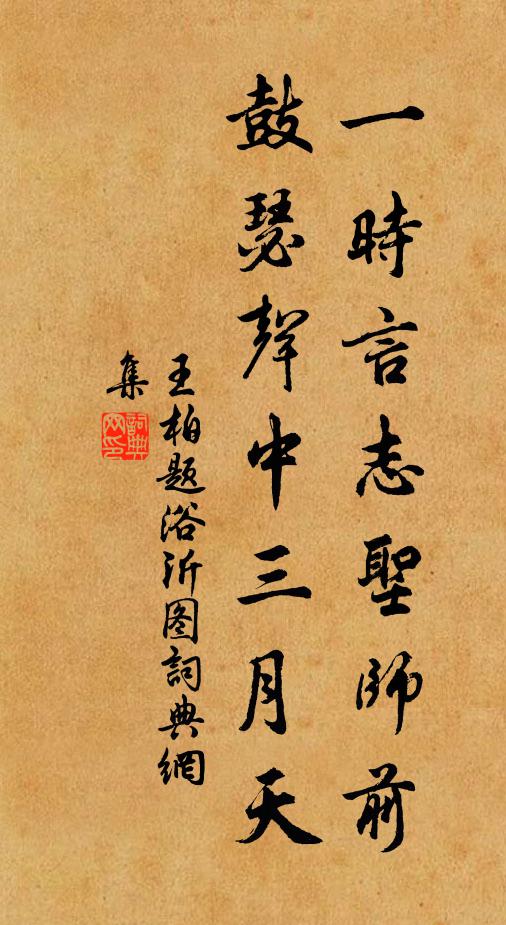 一時言志聖師前
鼓瑟聲中三月天
王柏题浴沂图詞典網
集
詞典网印